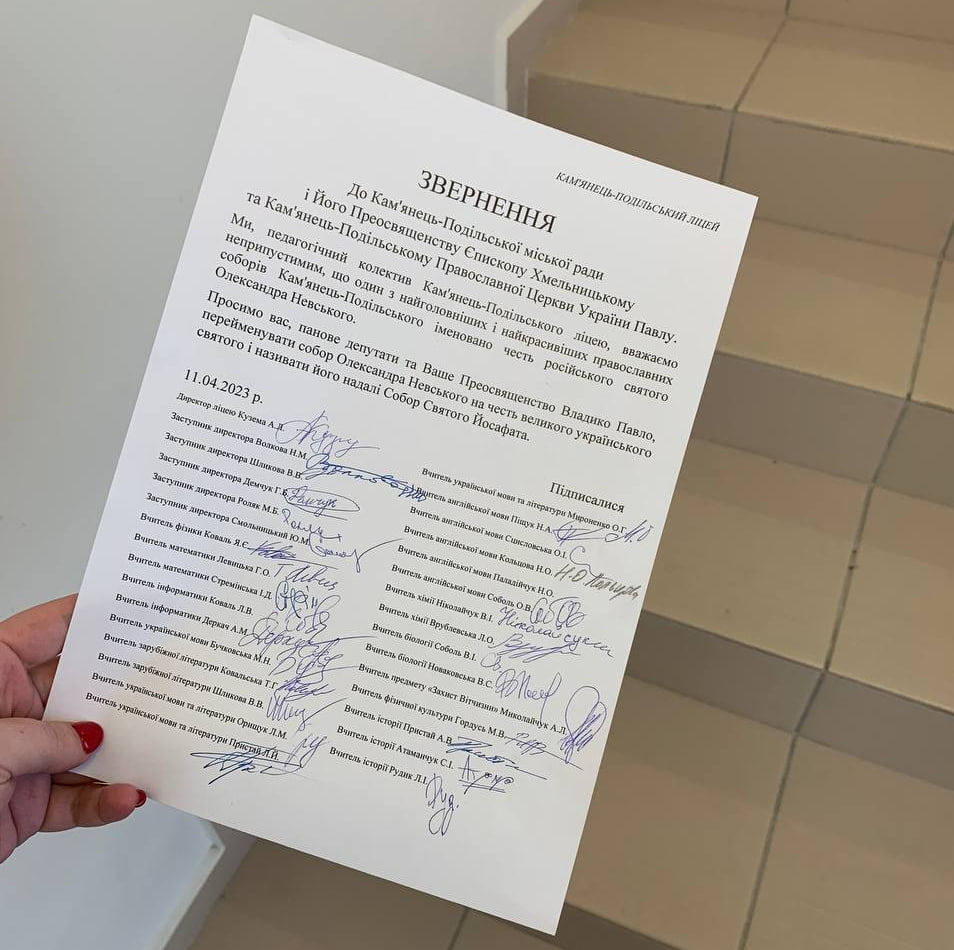 КАМ'ЯНЕЦЬ-ПОДІЛЬСЬКИЙ ЛІЦЕЙ
ЗВЕРНЕННЯ
До Кам'янець-Подільської міської ради
і Його Преосвященству Єпископу Хмельницькому
та Кам'янець-Подільському Православної Церкви України Павлу.
Ми, педагогічний колектив Кам'янець-Подільського ліцею, вважаємо
неприпустимим, що один з найголовніших і найкрасивіших православних
соборів Кам'янець-Подільського іменовано честь російського святого
Олександра Невського.
Просимо вас, панове депутати та Ваше Преосвященство Владико Павло,
перейменувати собор Олександра Невського на честь великого українського
святого і називати його надалі Собор Святого Йосафата.
11.04.2023 р.
Підписалися
Директор ліцею Кузема А.Л.
Заступник директора Волкова Н.М.
Заступник директора Шликова В.В.
Заступник директора Демчук Г.В.
Заступник директора Роляк М.Б.
Заступник директора Смольницький Ю.М.
Вчитель фізики Коваль Я.Є.
Вчитель математики Левицька Г.О.
Вчитель математики Стремінська І.Д.
Вчитель інформатики Коваль Л.В.
Вчитель інформатики Деркач А.М.
Вчитель української мови Бучковська М.Н.
Вчитель зарубіжної літератури Ковальська Т.Г.
Вчитель зарубіжної літератури Шликова В.В.
Вчитель української мови та літератури Орищук Л.М.
Вчитель української мови та літератури Пристай Л.Й.
Вчитель української мови та літератури Мироненко О.Г.
Вчитель англійської мови Піщук Н.А.
Вчитель англійської мови Сцисловська О.І.
Вчитель англійської мови Кольцова Н.О.
Вчитель англійської мови Паладійчук Н.О.
Вчитель англійської мови Соболь О.В.
Вчитель хімії Ніколайчук В.І.
Вчитель хімії Врублевська Л.О.
Вчитель біології Соболь В.І.
Вчитель біології Новаковська В.С.
Вчитель предмету «Захист Вітчизни» Миколайчук А.Л.
Вчитель фізичної культури Гордусь М.В.
Вчитель історії Пристай А.В.
Вчитель історії Атаманчук С.І.
Вчитель історії Рудик Л.І.